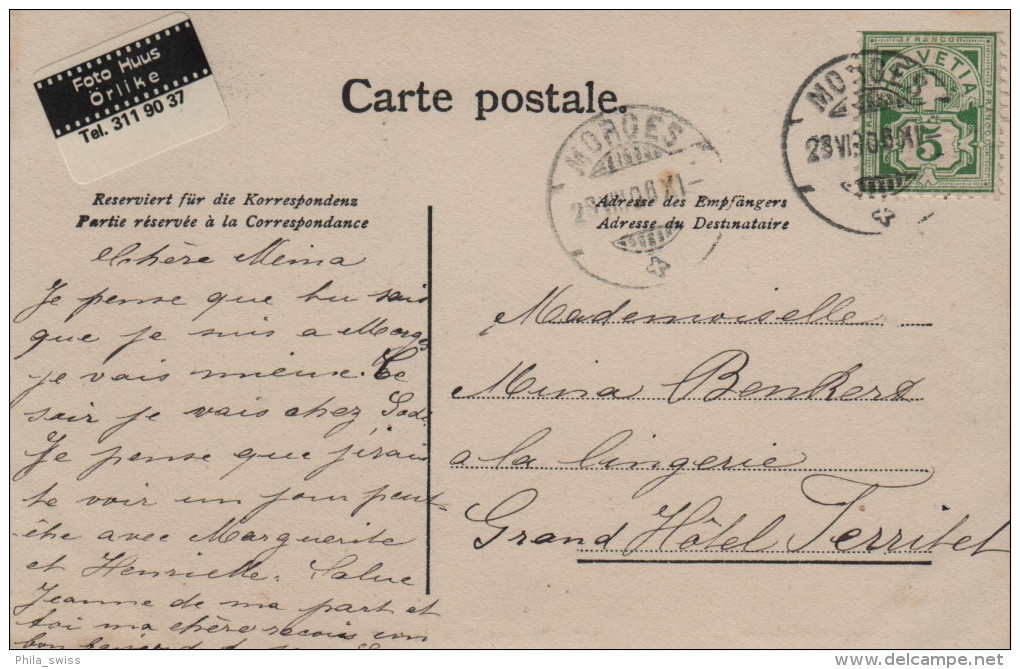 Foto Huus
Örlike
Tel. 311 90 37
Carte postale.
FRANCO
HELVETIA
FRANCO
5
MORGES
MORGES
23 VII 06 XI-
Reserviert für die Korrespondenz
Partie réservée à la Correspondance
Adresse des Empfängers
Adresse du Destinataire
Chère Mina
Je pense que tu sais
que je suis a Morges
je vais mieux. Ce
soir je vais chez
Je pense que j'irai
te voir un jour peut-
être avec Marguerite
et Henriette. Salue
Jeanne de ma part et
toi ma chère recois un
bon
Mademoiselle
Mina Benkert
a la lingerie
Grand Hôtel Territet
Phila_swiss
delcampe.net